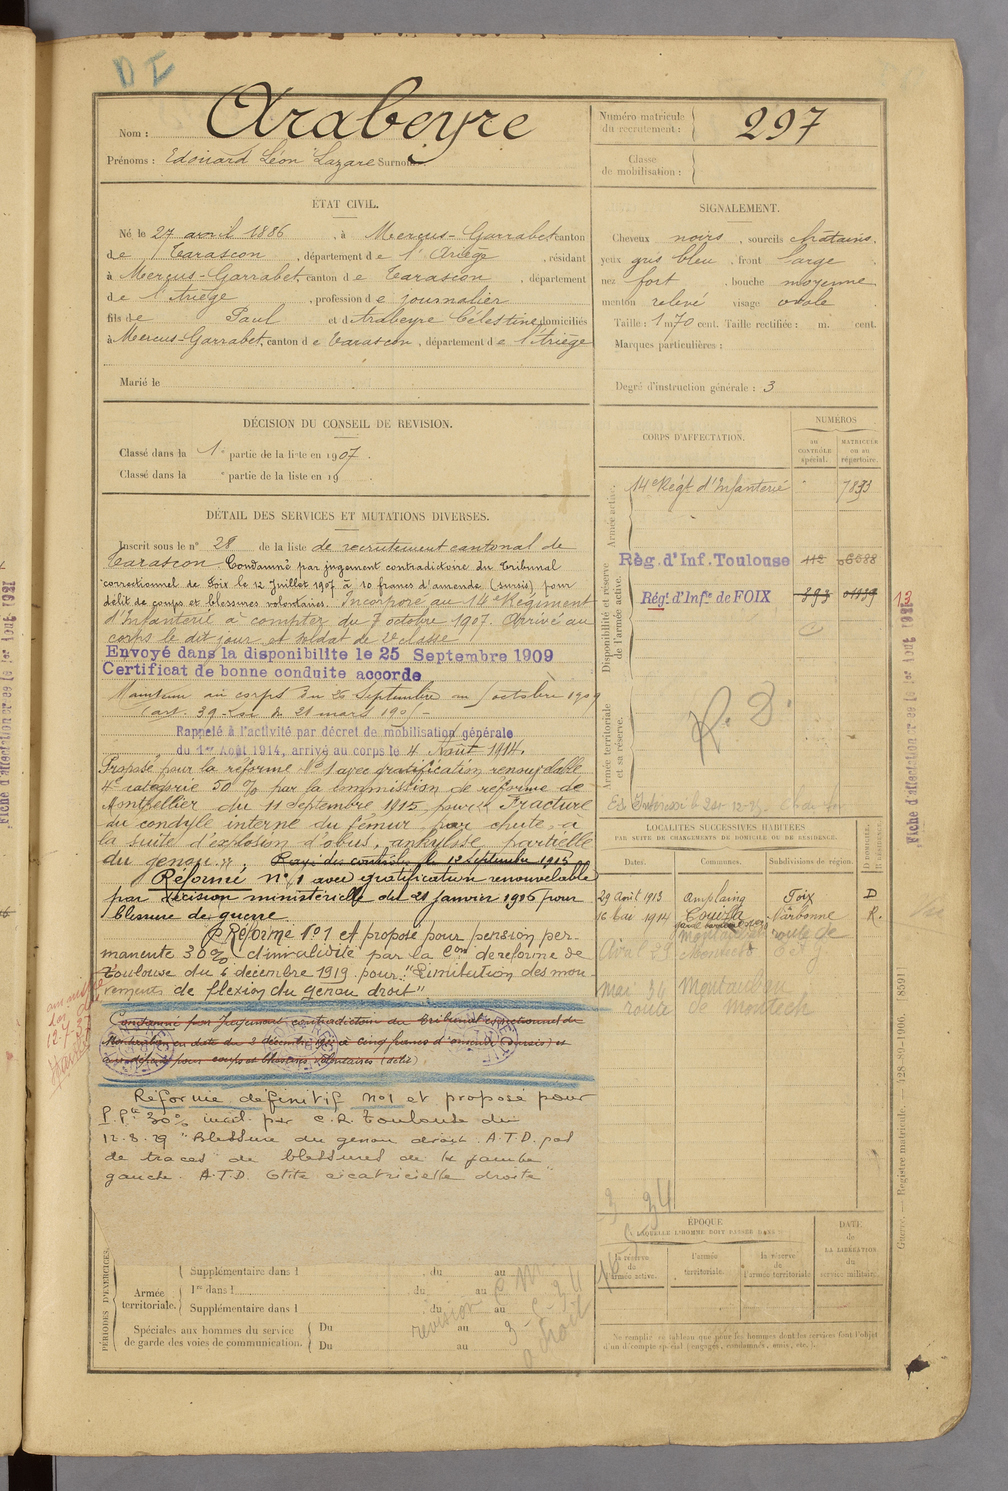 D I
Nom : Arabeyre
Prénoms : Edouard Léon Lazare Surnoms
Numéro matricule du recrutement : 297
Classe de mobilisation :
ÉTAT CIVIL.
Né le 27 avril 1886, à Mercus-Garrabet canton
de Tarascon, département de l'Ariège, résidant
à Mercus-Garrabet, canton de Tarascon, département
de l'Ariège, profession de journalier
fils de Paul et d'Arabeyre Célestine, domiciliés
à Mercus-Garrabet, canton de Tarascon, département de l'Ariège
Marié le
SIGNALEMENT.
Cheveux noirs, sourcils chatains.
yeux gris bleu, front large
nez fort, bouche moyenne
menton relevé visage ovale
Taille : 1 m 70 cent. Taille rectifiée : m. cent.
Marques particulières :
Degré d'instruction générale : 3
DÉCISION DU CONSEIL DE REVISION.
Classé dans la 1e partie de la liste en 1907.
Classé dans la e partie de la liste en 19
DÉTAIL DES SERVICES ET MUTATIONS DIVERSES.
Inscrit sous le n° 28 de la liste de recrutement cantonal de
Tarascon. Condamné par jugement contradictoire du Tribunal
correctionnel de Foix le 12 Juillet 1907 à 10 francs d'amende (sursis) pour
délit de coups et blessures volontaires. Incorporé au 14e Régiment
d'Infanterie à compter du 7 octobre 1907. Arrivé au
corps le dit jour et soldat de 2e classe
Envoyé dans la disponibilite le 25 Septembre 1909
Certificat de bonne conduite accorde
Maintenu au corps du 26 Septembre au octobre 1909
(art. 39 Loi du 21 mars 1905
Rappelé à l'activité par décret de mobilisation générale
du 1er Août 1914, arrivé au corps le 4 Août 1914.
Proposé pour la réforme N° 1 avec gratification renouvelable
4e catégorie 50 % par la commission de réforme de
Montpellier du 11 septembre 1915 pour : Fracture
du condyle interne du fémur, par chute, à
la suite d'explosion d'obus, ankylose partielle
du genou. Rayé des contrôles le 12 Septembre 1915
Réformé n° 1 avec gratification renouvelable
par décision ministérielle du 21 janvier 1916 pour
blessure de guerre
Réformé N° 1 et proposé pour pension per-
manente 30% d'invalidité par la Con de réforme de
Toulouse du 6 décembre 1919 pour : "Limitation des mou-
vements de flexion du genou droit"
Condamné par Jugement contradictoire du Tribunal correctionnel de
Montauban en date du 3 décembre à cinq francs d'amende (sursis) et
pour coups et blessures volontaires
Réforme définitif n°1 et proposé pour
P.Pte 30% inval. par C.R. Toulouse du
12.8.29 "Blessure du genou droit. A.T.D. pas
de traces de blessures de la jambe
gauche. A.T.D. Otite cicatricielle droite"
CORPS D'AFFECTATION.
NUMÉROS
DU CONTRÔLE spécial.
MATRICULE OU AU répertoire.
Armée active.
14e Régt d'Infanterie 7893
Disponibilité et réserve de l'armée active.
Règ. d'Inf. Toulouse 112
Régt. d'Infie de FOIX 893 01139
12
Armée territoriale et sa réserve.
R. D
LOCALITÉS SUCCESSIVES HABITÉES
PAR SUITE DE CHANGEMENTS DE DOMICILE OU DE RÉSIDENCE.
Dates. Communes. Subdivisions de région. D DOMICILE. R RÉSIDENCE.
29 Août 1913 Amplaing Foix D
16 Mai 1914 Couiza Narbonne R.
Avril 29 Montauban route de
Mai 34 Montauban
route de Montech
3 34
ÉPOQUE
À LAQUELLE L'HOMME DOIT PASSER DANS
la réserve de l'armée active.
l'armée territoriale.
la réserve de l'armée territoriale
DATE de LA LIBÉRATION du service militaire.
Ne remplir ce tableau que pour les hommes dont les services font l'objet
d'un décompte spécial (engagés, condamnés, omis, etc.).
PÉRIODES D'EXERCICES.
Supplémentaire dans l du au
Armée territoriale.
1re dans l du au
Supplémentaire dans l du au
Spéciales aux hommes du service
de garde des voies de communication.
Du au
Du au
revision
Guerre. — Registre matricule. — 428-89-1906. [8591]